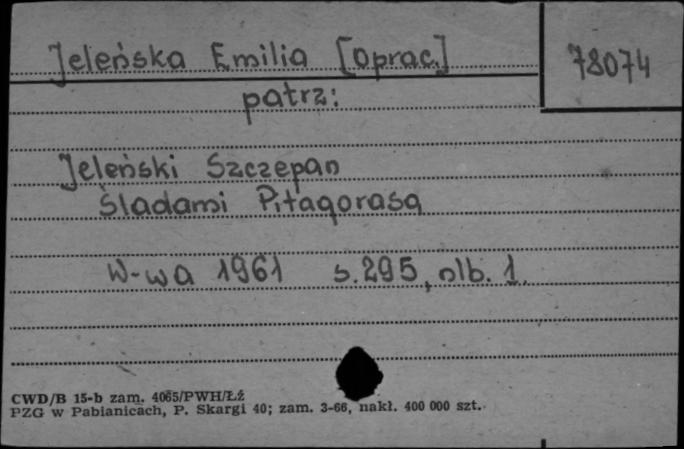 Jeleńska Emilia [oprac.]
78074
patrz:
Jeleński Szczepan
Śladami Pitagorasa
W-wa 1961 s. 295, nlb. 1.
CWD/B 15-b zam. 4065/PWH/Łź
PZG w Pabianicach, P. Skargi 40; zam. 3-66, nakł. 400 000 szt.